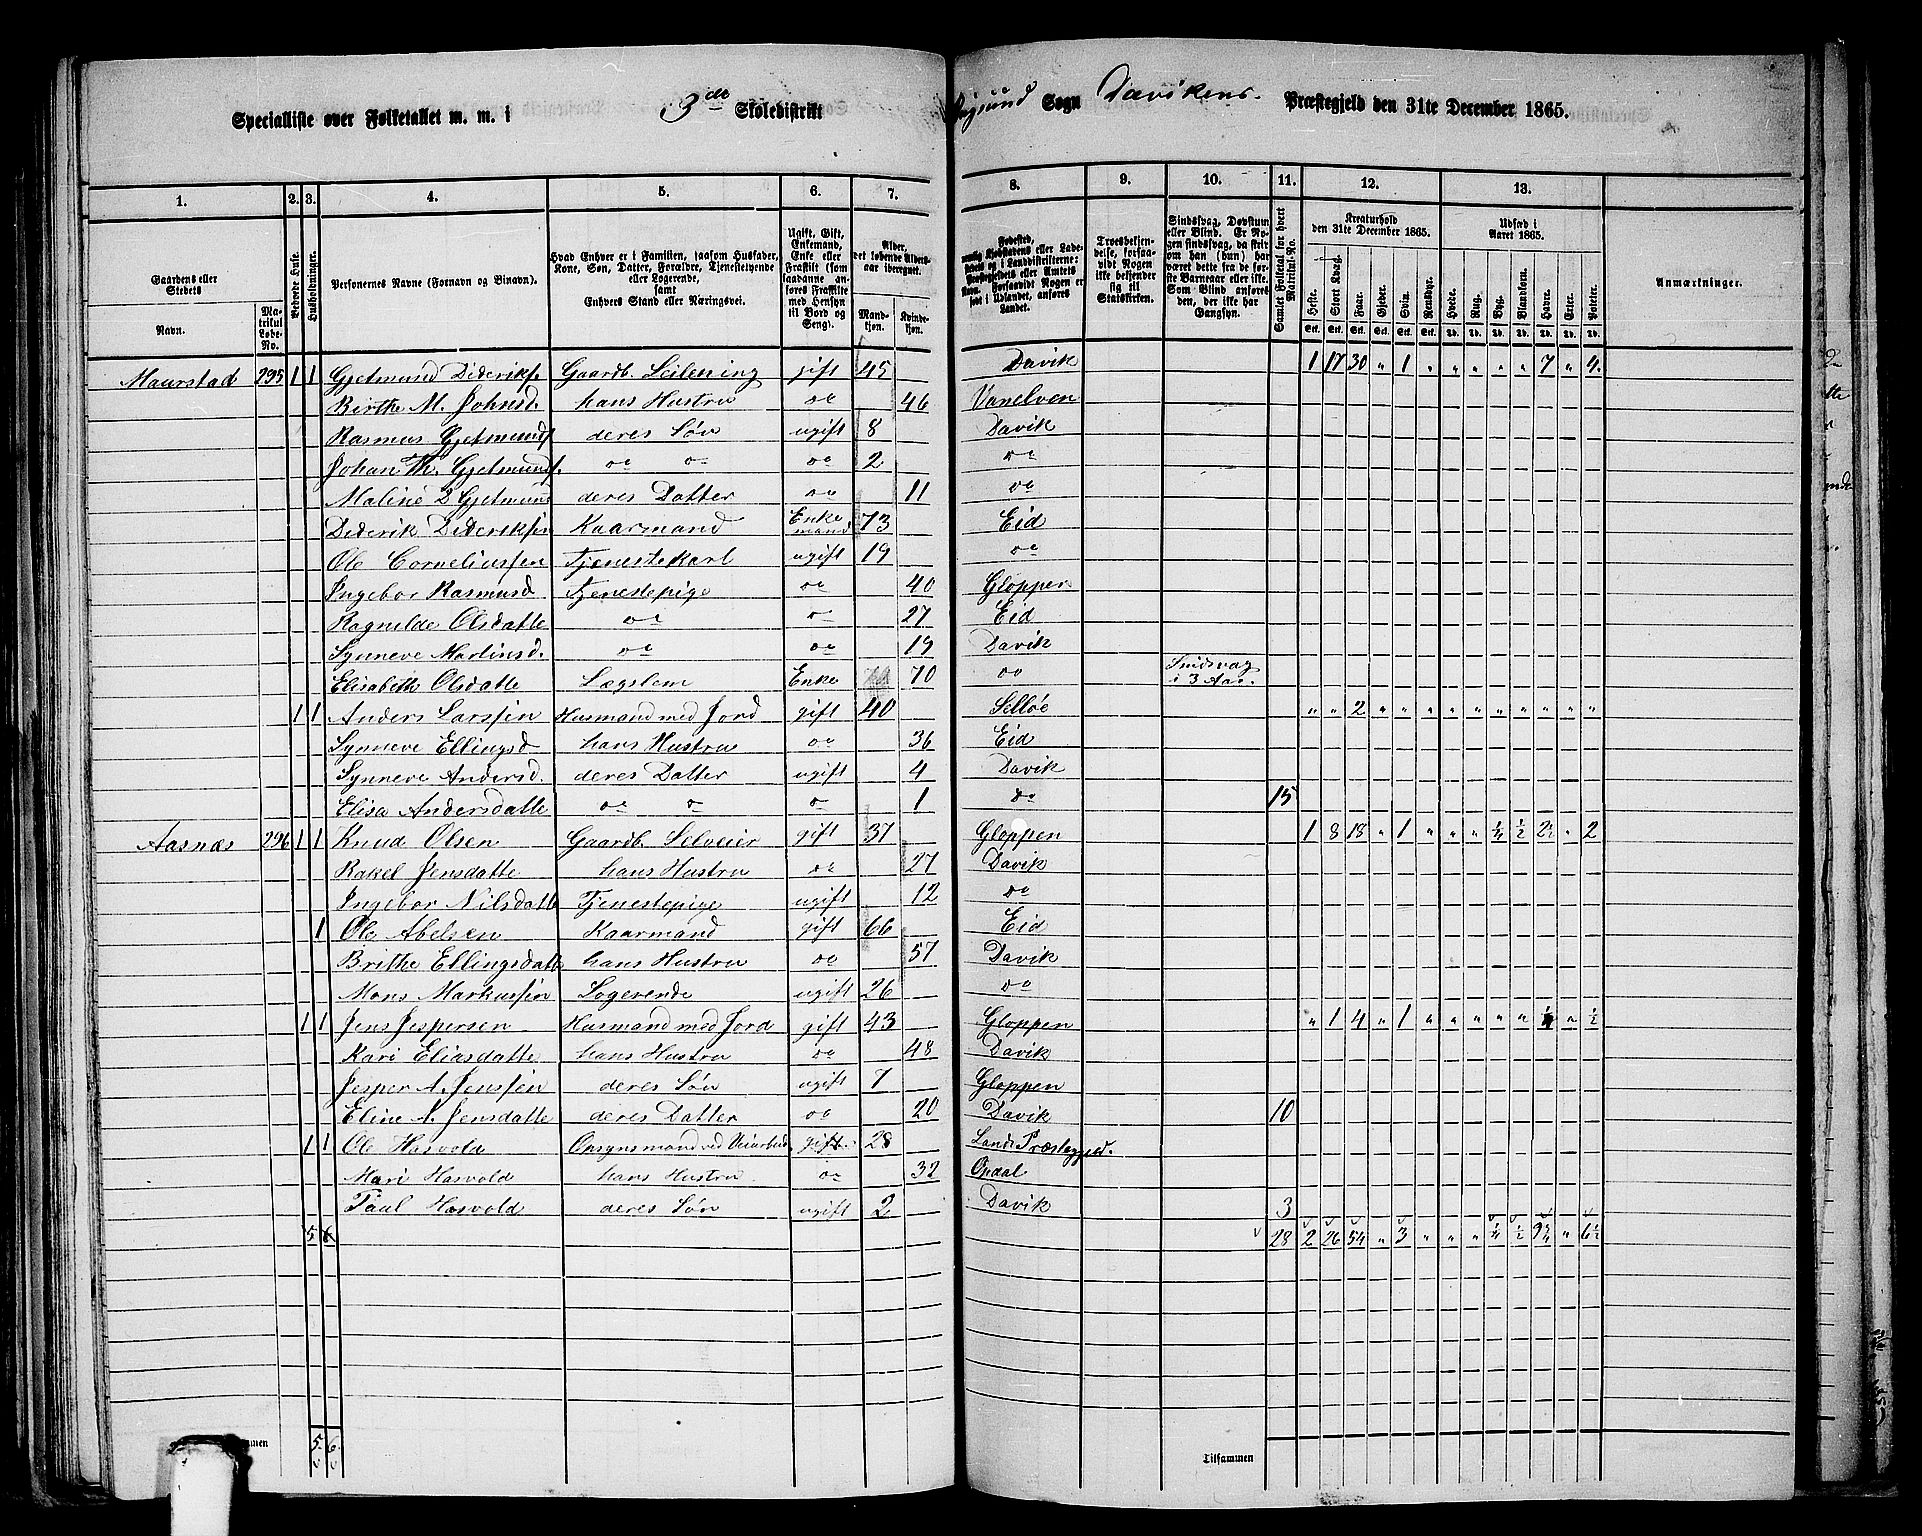 Specialliste over Folketallet m. m. i 3die Skoledistrikt Sogn Davikens Præstegjeld den 31te December 1865.
1. 2. 3. 4. 5. 6. 7. 8. 9. 10. 11. 12. 13.
Gaardens eller Stedets
Navn. Matrikul Løbe-No.
Beboede Huse.
Husholdninger.
Personernes Navne (Fornavn og Binavn).
Hvad Enhver er i Familien, saasom Husfader, Kone, Søn, Datter, Forældre, Tjenestetyende eller Logerende, samt Enhvers Stand eller Næringsvei.
Ugift, Gift, Enkemand, Enke eller Fraskilt (som saadanne anføres Fraskilte med Hensyn til Bord og Seng).
Alder, det løbende Aldersaar iberegnet.
Mandkjøn. Kvindekjøn.
Fødested,
Troesbekjendelse, forsaavidt Nogen ikke bekjender sig til Statskirken.
Sindssvag, Døvstum eller Blind. Er Nogen sindssvag, da skrives
Samlet Folketal for hvert Matrikul-No.
Kreaturhold den 31te December 1865.
Heste. Stort Kvæg. Faar. Gjeder. Sviin. Rensdyr.
Udsæd i Aaret 1865.
Hvede. Rug. Byg. Blandkorn. Havre. Erter. Poteter.
Anmærkninger.
Maurstad 295 1 1 Gjetmund Dideriks. Gaardb. Leilening gift 45 Davik 1 17 30 " 1 " " " " " 7 " 4.
Birthe M. Johnsd. hans Hustru do 46 Vanelven
Rasmus Gjetmunds. deres Søn ugift 8 Davik
Johan Th. Gjetmunds. do do do 2 do
Maline Gjetmund deres Datter do 11 do
Diderik Dideriksen Kaarmand Enkemand 73 Eid
Ole Corneliussen Tjenestekarl ugift 19 do
Ingebor Rasmusd Tjenestepige do 40 Gloppen
Ragnilde Olsdatte do do 27 Eid.
Synneve Martinsd. do do 19 Davik
Elisabeth Olsdatte Lægslem Enke 70 do Sindsvag i 3 Aar.
1 1 Anders Larssen Husmand med Jord gift 40 Selløe " " 2 " " " " " " " " " "
Synneve Ellingsd hans Hustru do 36 Eid
Synneve Andersd. deres Datter ugift 4 Davik
Elisa Andersdatte do do do 1 do 15
Aasnæs 296 1 1 Knud Olsen Gaardb. Selveier gift 37 Gloppen 1 8 18 " 1 " " " 1/4 1/2 2 1/2 " 2
Rakel Jensdatte hans Hustru do 27 Davik
Ingebor Nilsdatte Tjenestepige ugift 12 do
1 Ole Abelsen Kaarmand gift 66 Eid
Brithe Ellingsdatte hans Hustru do 57 Davik
Mons Markussen Logerende ugift 26 do
1 1 Jens Jespersen Husmand med Jord gift 43 Gloppen " 1 4 " 1 " " " " " " 1/2
Kari Eliasdatte hans Hustru do 48 Davik
Jesper A. Jenssen deres Søn ugift 7 Gloppen
Eline A. Jensdatte deres Datter do 20 Davik 10
1 1 Ole Hasvold Opsynsmand ved Veiarbeid gift 28 Lands Præstegjed.
Mari Hasvold hans Hustru do 32 Opdal
Paul Hasvold deres Søn ugift 2 Davik 3
5 6 28 2 26 54 " 3 " " " 1/4 1/2 9 3/4 " 6 1/2
5. 6. Tilsammen